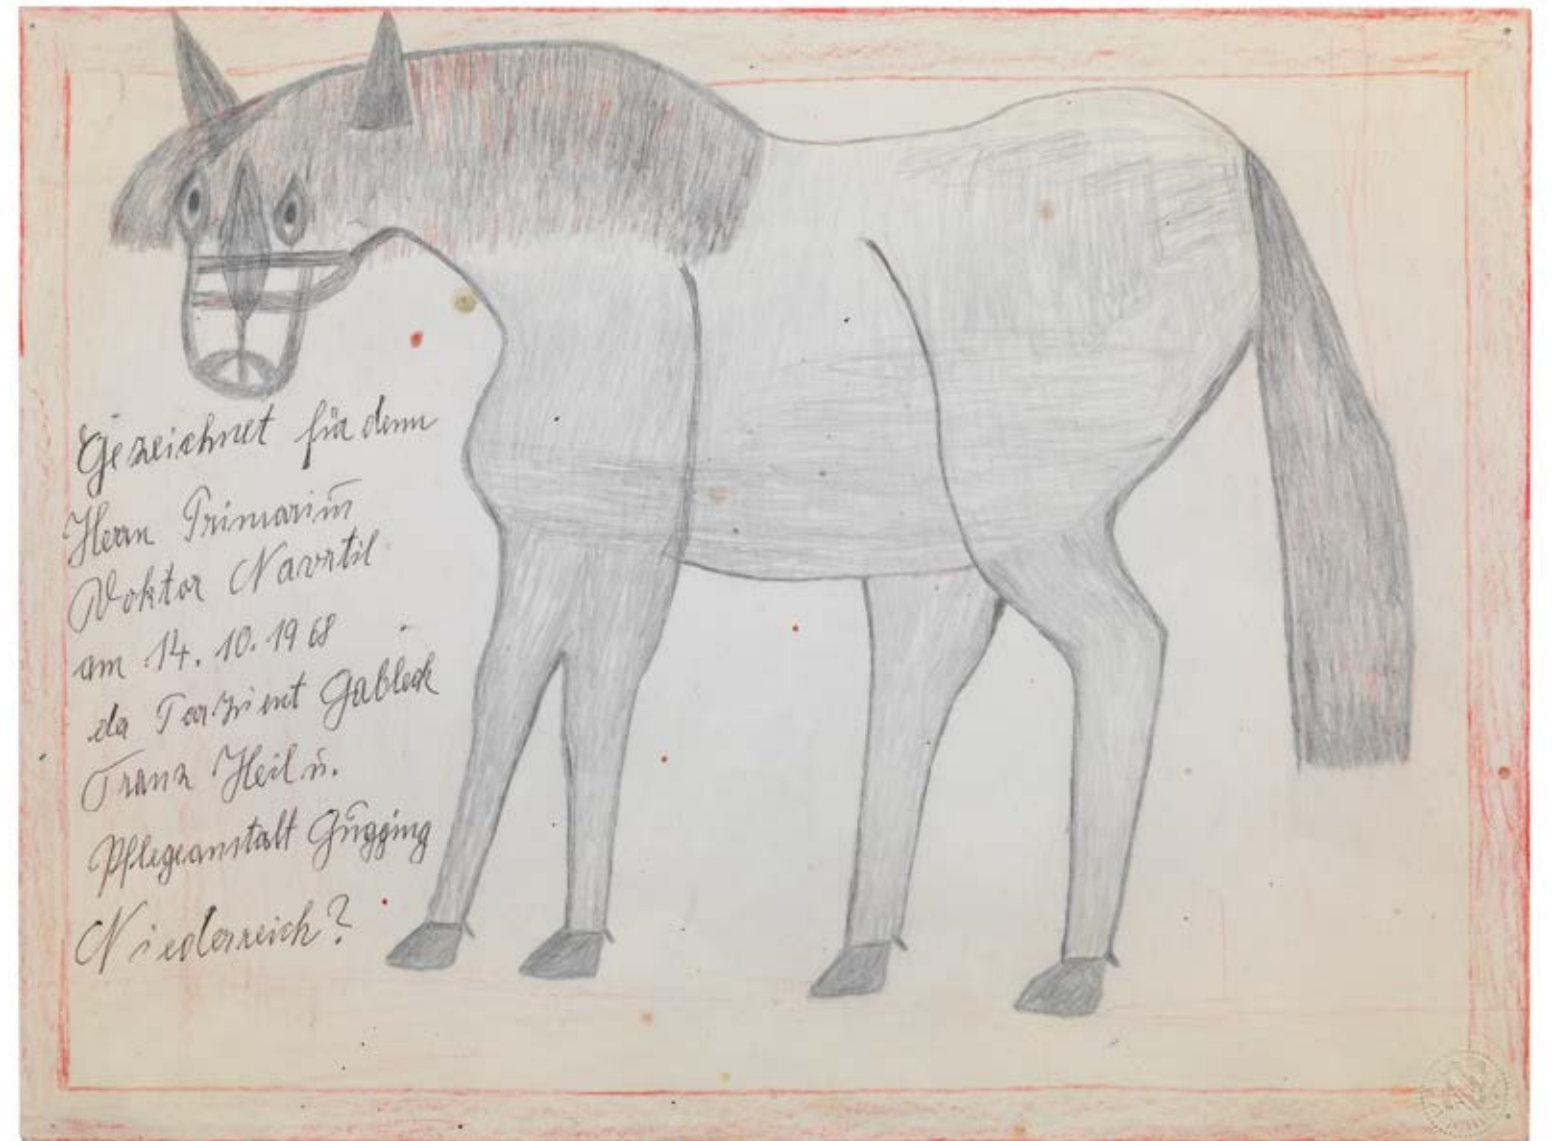 Gezeichnet für denn
Herrn Primariūs
Doktor Navrtil
am 14. 10. 1968
da Gableck
Franz Heil ū.
Pflegeanstalt Gūgging
Niederreich?